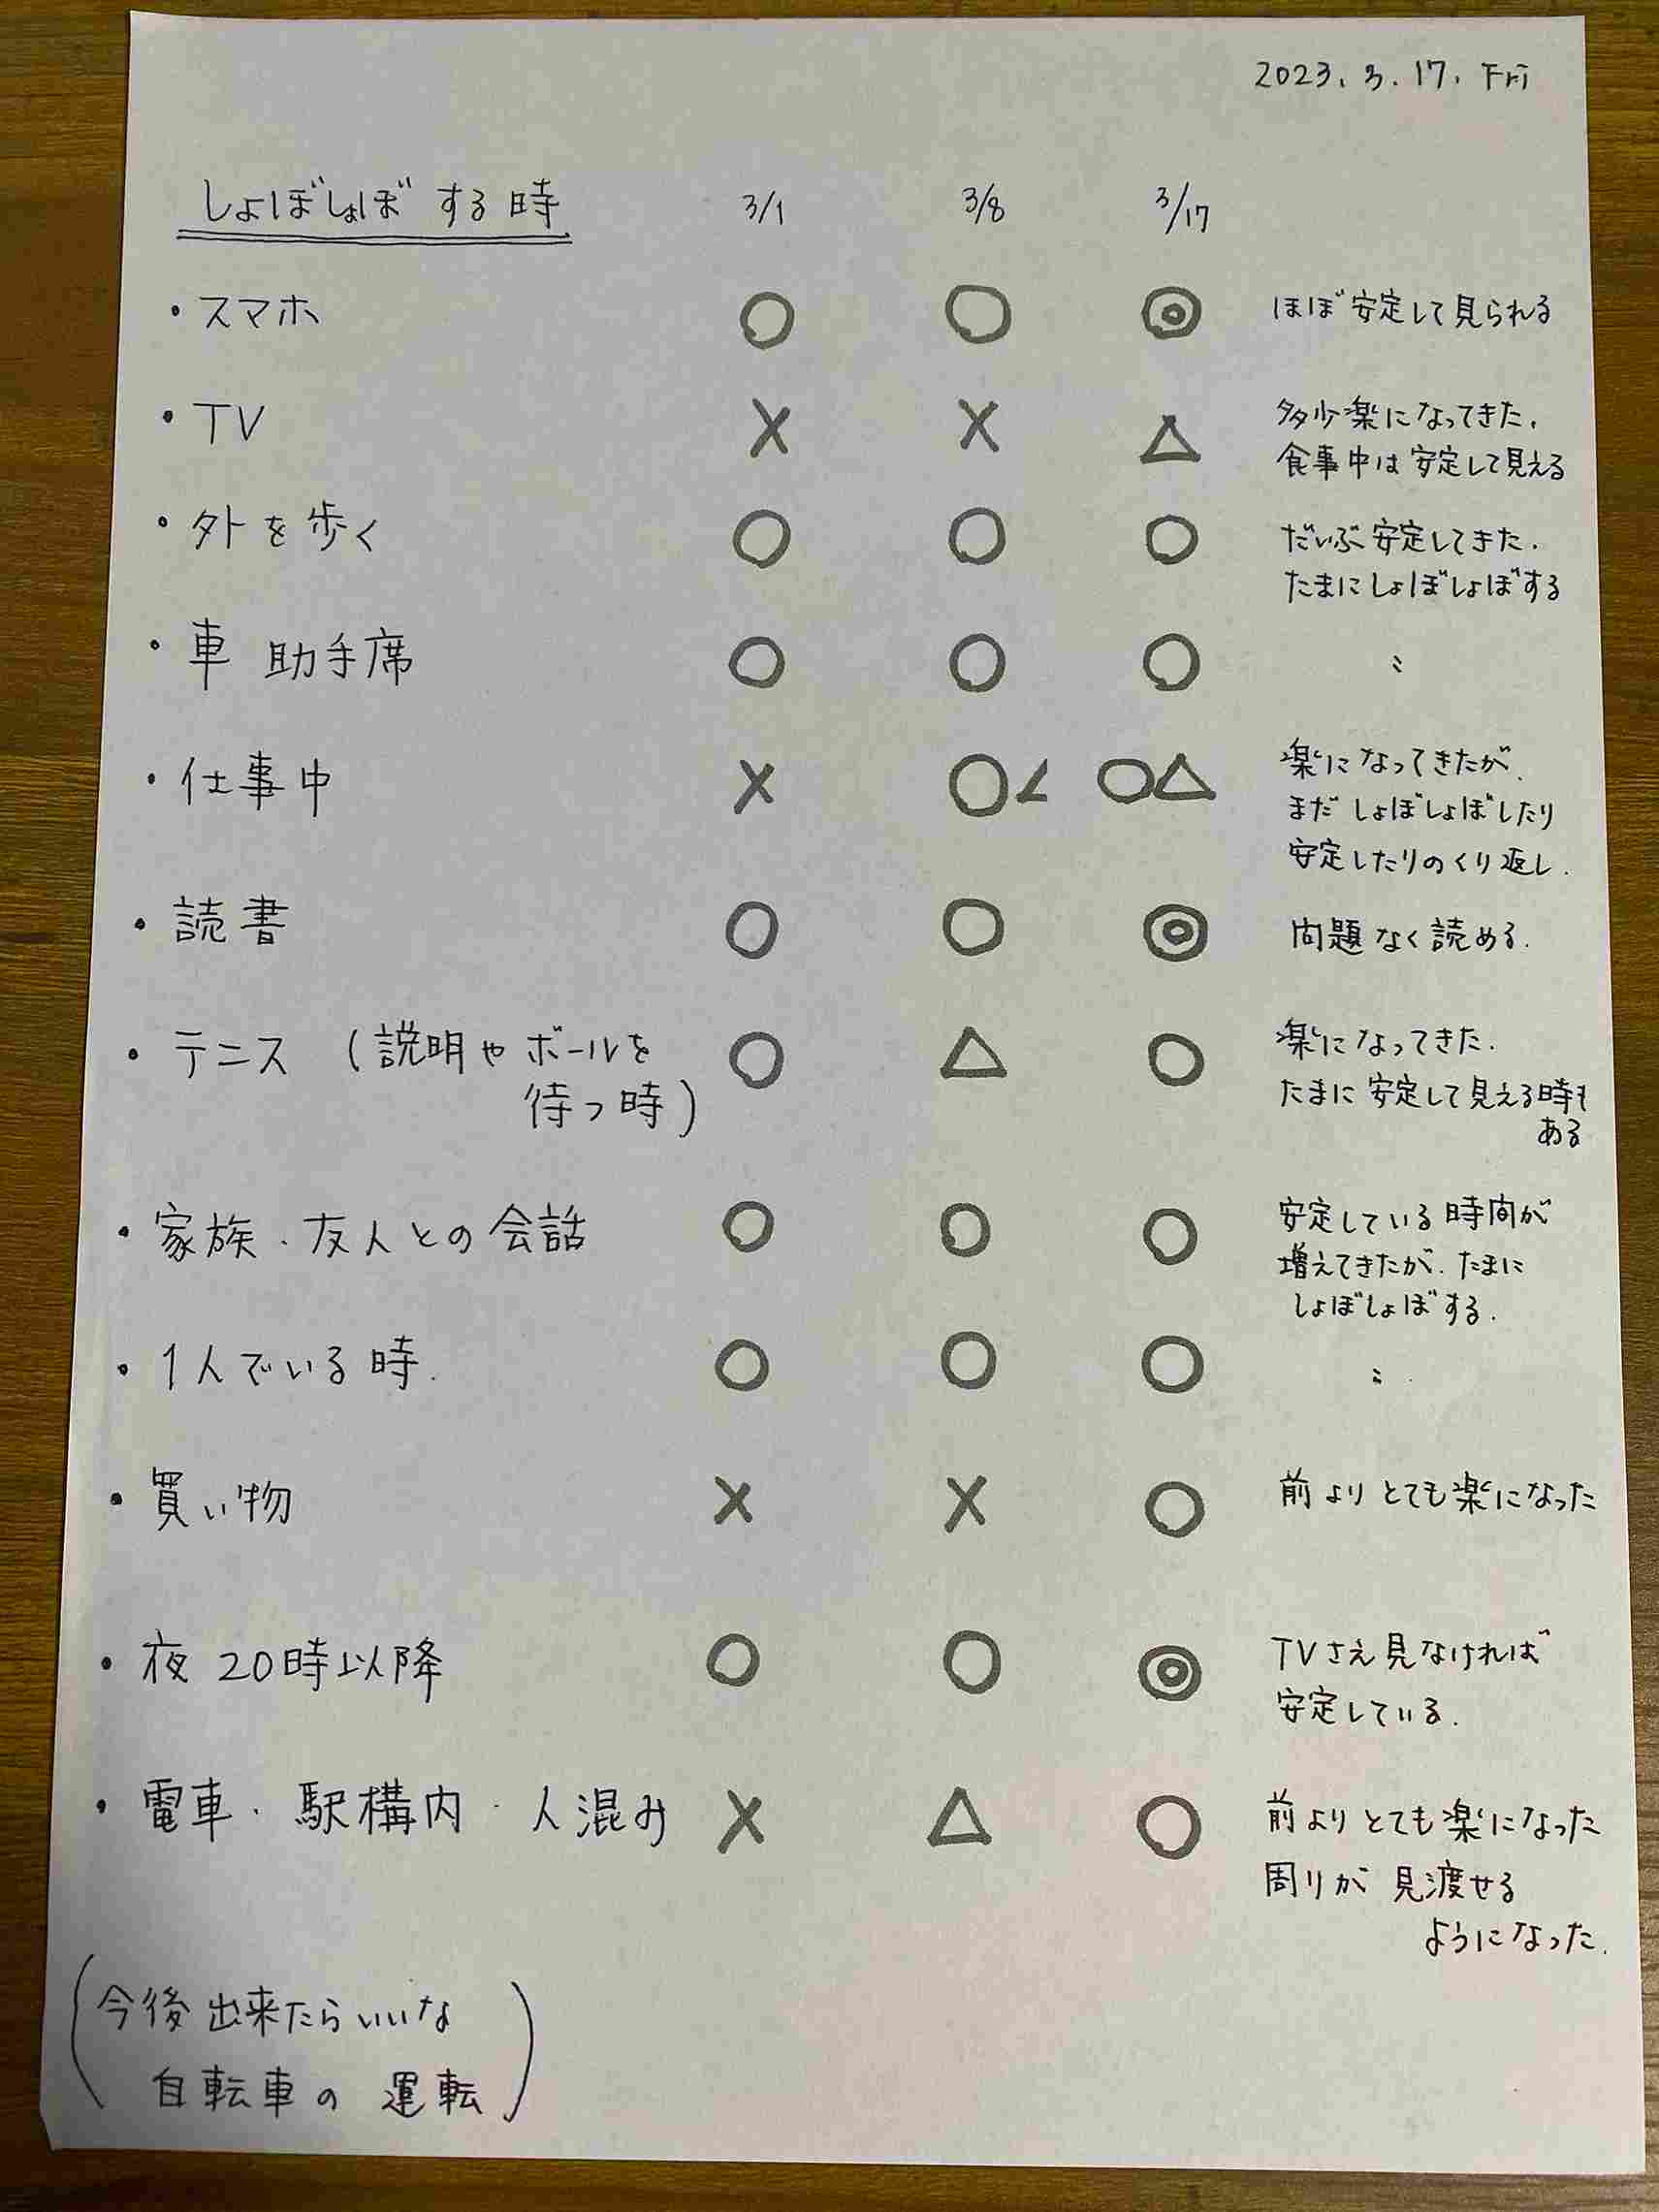 2023. 3. 17. Fri
しょぼしょぼ する時 3/1 3/8 3/17
・スマホ ○ ○ ◎ ほぼ安定して見られる
・TV × × △ 多少楽になってきた.
食事中は安定して見える
・外を歩く ○ ○ ○ だいぶ安定してきた.
たまにしょぼしょぼする
・車 助手席 ○ ○ ○ 〃
・仕事中 × ○∠ ○△ 楽になってきたが.
まだ しょぼしょぼしたり
安定したりのくり返し.
・読書 ○ ○ ◎ 問題なく読める.
・テニス (説明やボールを ○ △ ○ 楽になってきた.
待つ時) たまに安定して見える時も
ある
・家族・友人との会話 ○ ○ ○ 安定している時間が
増えてきたが. たまに
しょぼしょぼする.
・1人でいる時. ○ ○ ○ 〃
・買い物 × × ○ 前よりとても楽になった
・夜 20時以降 ○ ○ ◎ TVさえ見なければ
安定している.
・電車・駅構内・人混み × △ ○ 前よりとても楽になった
周りが 見渡せる
ようになった.
(今後出来たらいいな
自転車の 運転)